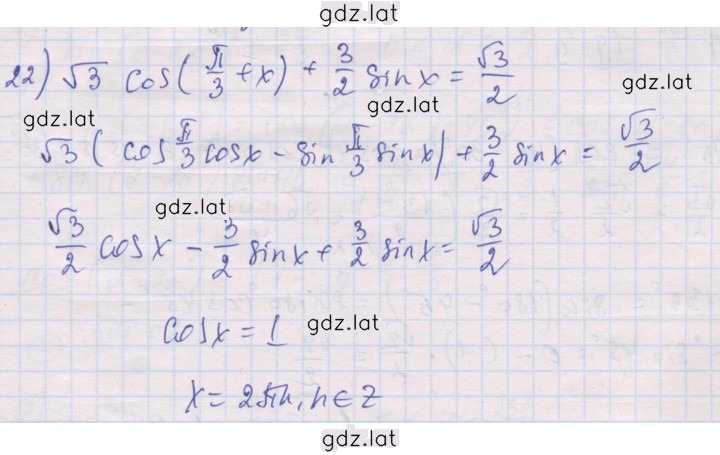 gdz.lat
22) √3 cos(π/3 + x) + 3/2 sinx = √3/2
gdz.lat
gdz.lat
gdz.lat
√3 ( cos π/3 cosx - sin π/3 sinx) + 3/2 sinx = √3/2
gdz.lat
√3/2 cosx - 3/2 sinx + 3/2 sinx = √3/2
cosx = 1 gdz.lat
x = 2πn, n ∈ Z
gdz.lat